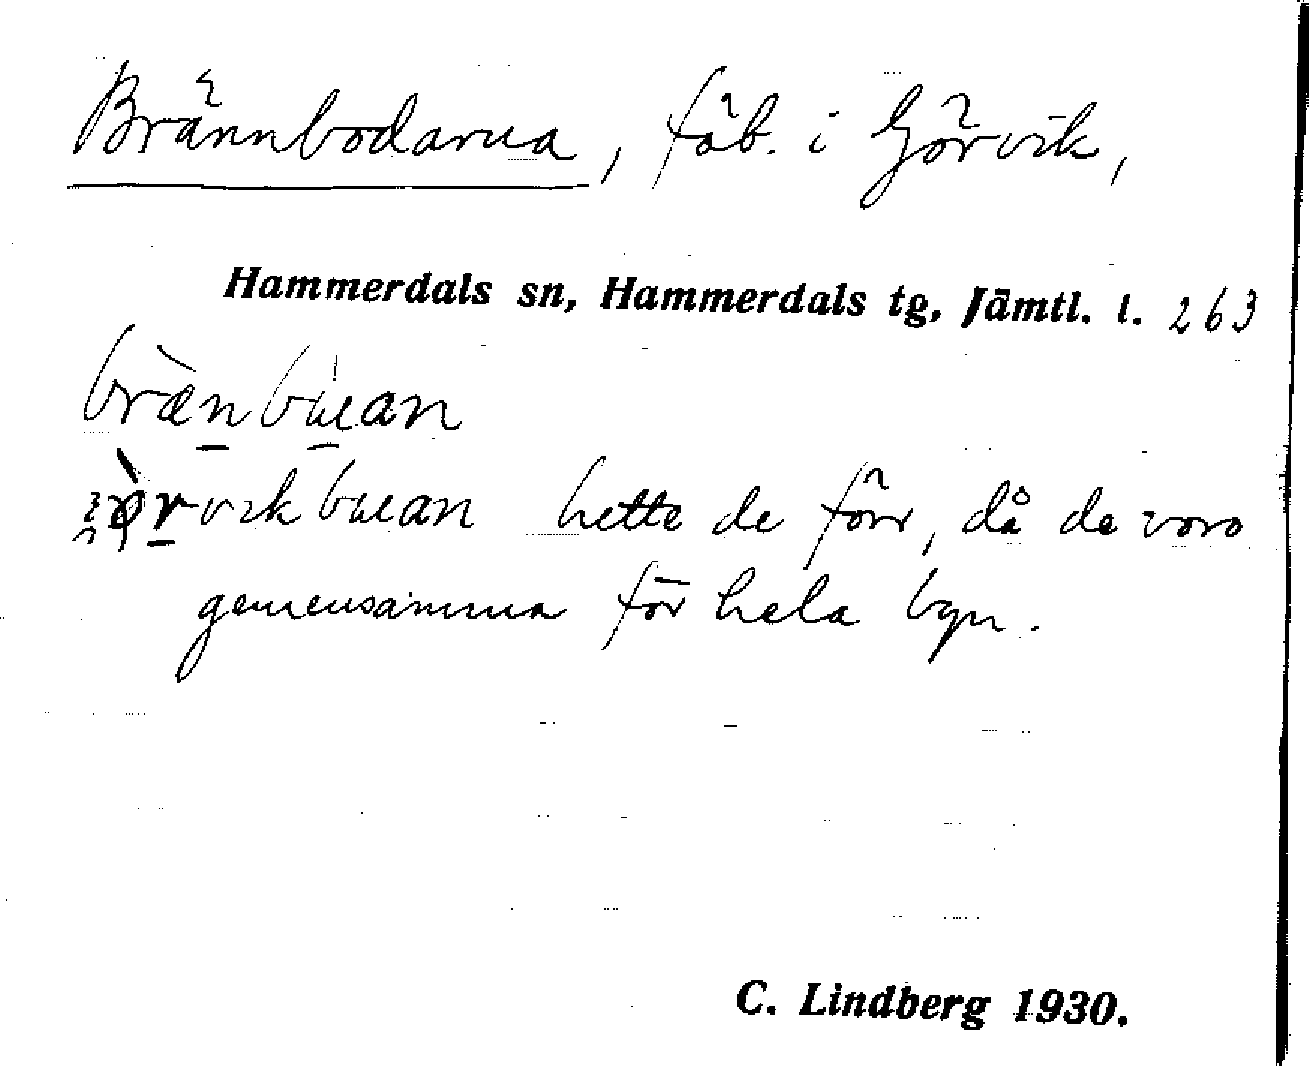 Brännbodarna, fäb. i Görvik,
Hammerdals sn, Hammerdals tg, Jämtl. l. 263
bræ̀nbuan
vikbuan hette de förr, då de voro
gemensamma för hela byn.
C. Lindberg 1930.